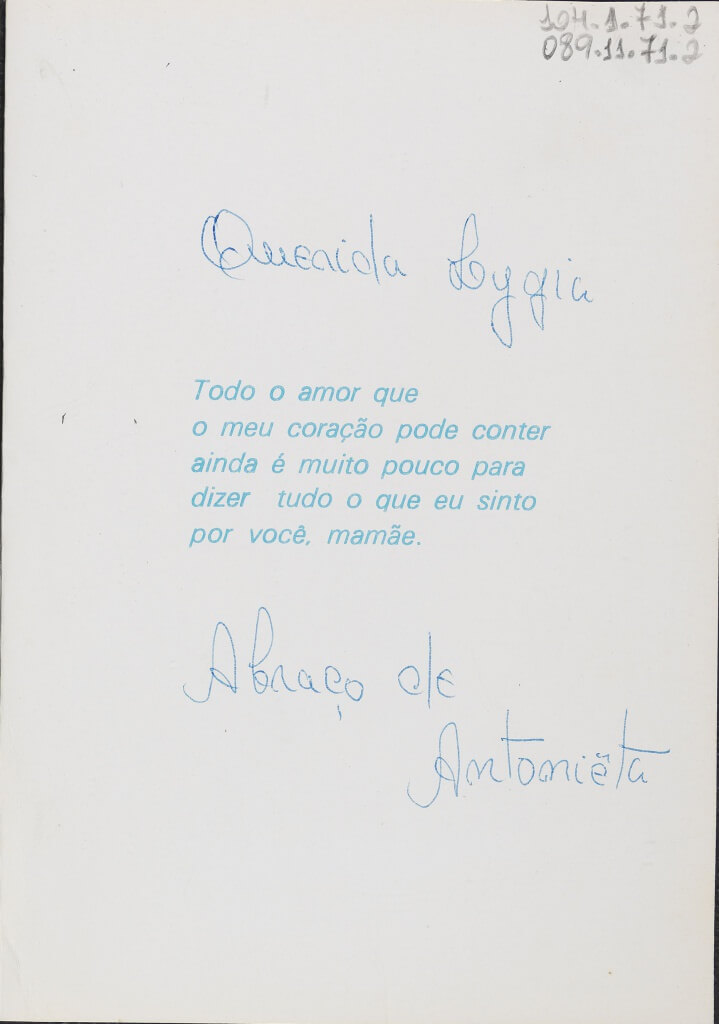 104.1.71.2
089.11.71.2
Querida Lygia
Todo o amor que
o meu coração pode conter
ainda é muito pouco para
dizer tudo o que eu sinto
por você, mamãe.
Abraço de
Antoniêta